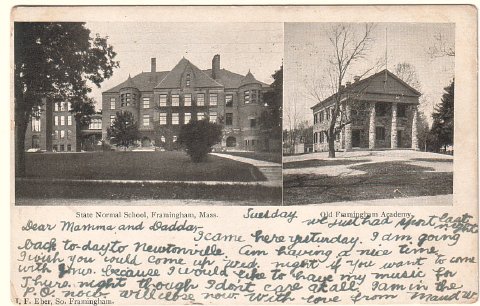 State Normal School, Framingham, Mass.
Old Framingham Academy.
Tuesday
Dear Mamma and Dadda,
We just had sport last night
I came here yesterday. I am going
back to day to Newtonville Am having a nice time
I wish you would come up Wed. night if you want to come
with you. because I would like to have my music for
Thurs. night though I don't care at all. I am in the
P.O. now. Will close now. With love from Maud W
J. F. Eber, So. Framingham.